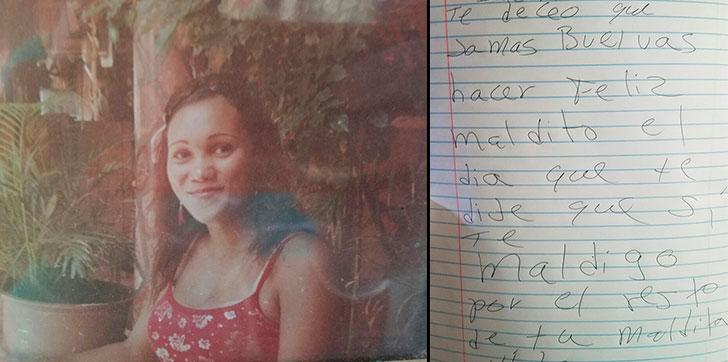 Te deceo que
Jamas Buelvas
hacer Feliz
maldito el
dia que te
dije que si,
Te
maldigo
por el resto
de tu maldita